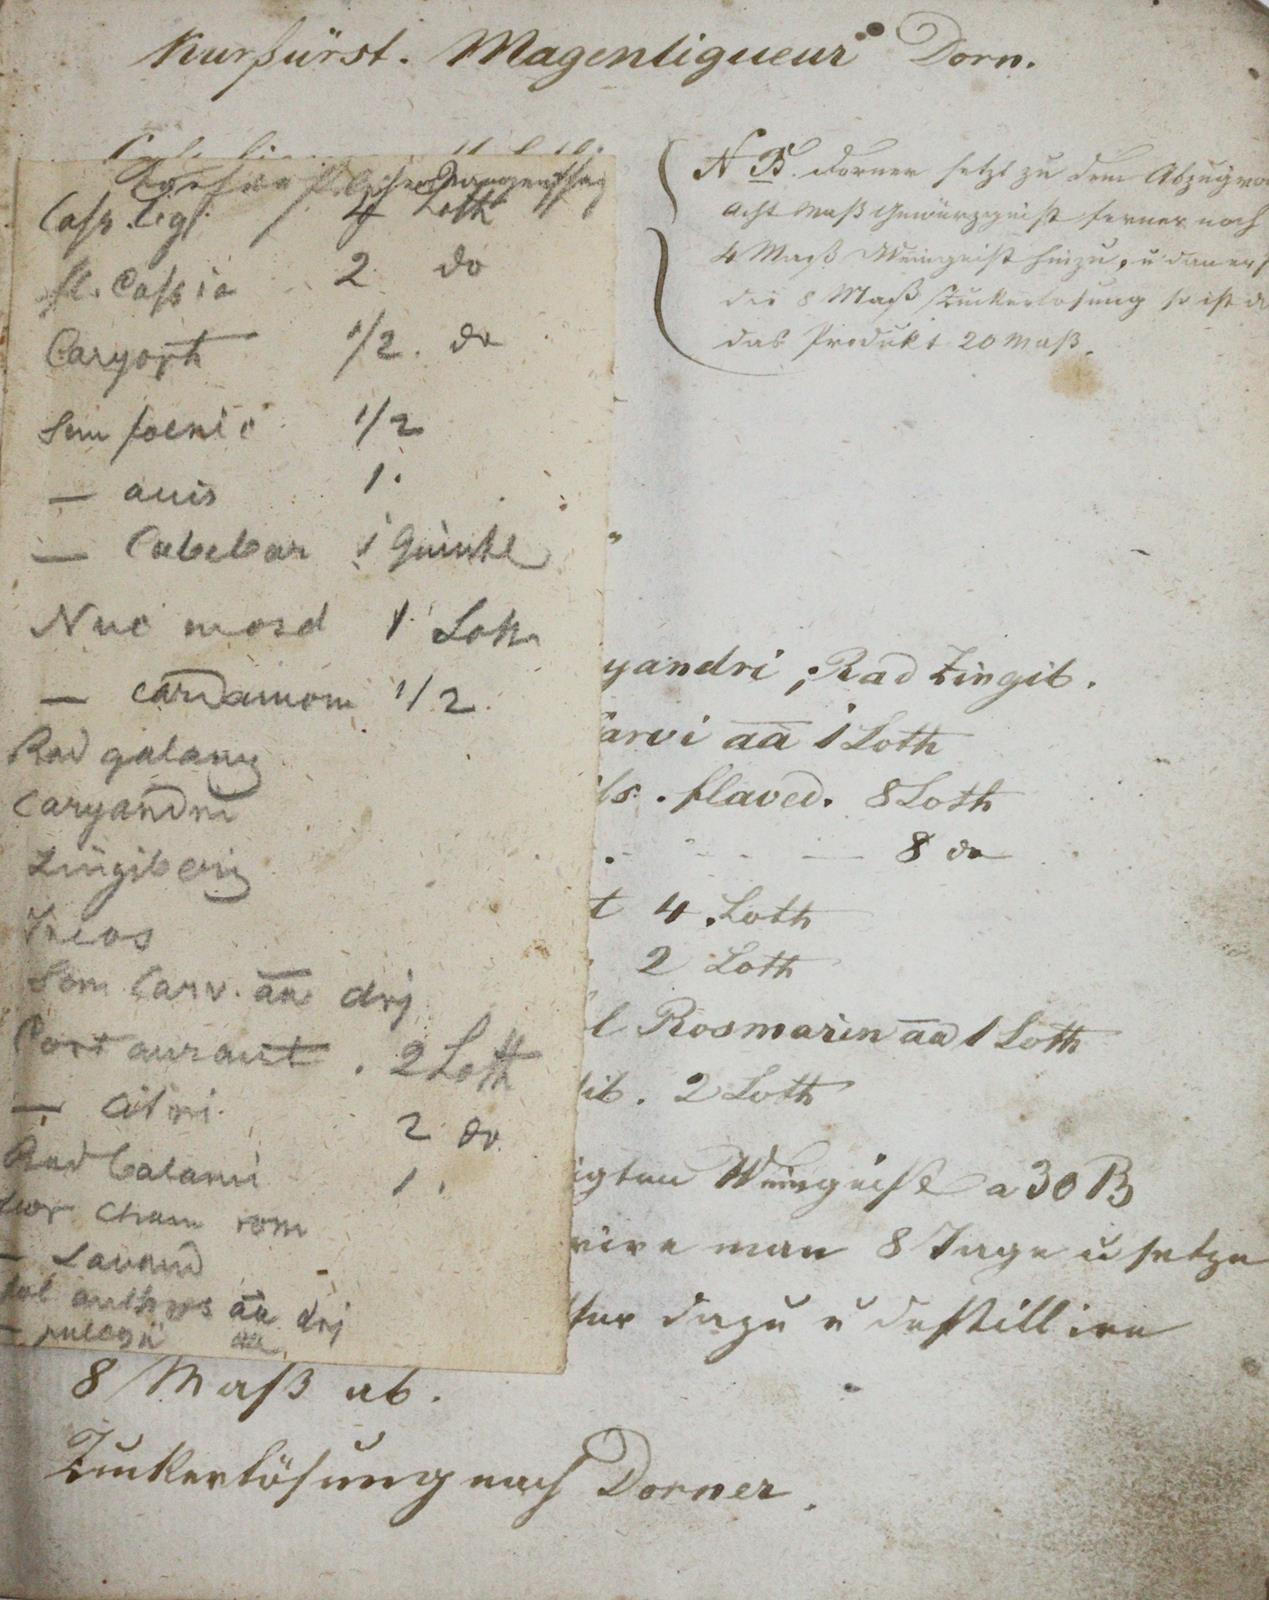 Kurfürst. Magenliqueur Dorn.
N B. Dorner setzt zu dem Abzug
acht Maß Gewürzgeist ferner noch
4 Maß Weingeist hinzu, u dan
die 8 Maß Zuckerlösung so ist
das Produkt 20 Maß.
Cass. lig. 4 Loth
fl. Cassia 2 do
Caryoph 1/2 do
Sem foenic 1/2
— anis 1.
— Cubebar 1 Quintl
Nuc mosd 1 Loth
— cardamom 1/2
Rad galang
Caryandri
Zingiberis
Ireos
Sem Carv. aa drj
Cort aurant. 2 Loth
— citri. 2 do.
Rad Calami 1.
cham rom
— Lavend
anthos aa drj
— pulegii aa
yandri ; Rad Zingib.
arvi aa 1 Loth
ls. flaved. 8 Loth
— 8 do
t 4 Loth
2 Loth
l Rosmarin aa 1 Loth
ib. 2 Loth
igten Weingeist a 30 B
rire man 8 Tage u setze
ser dazu u destillire
8 Maß ab.
Zuckerlösung nach Dorner.